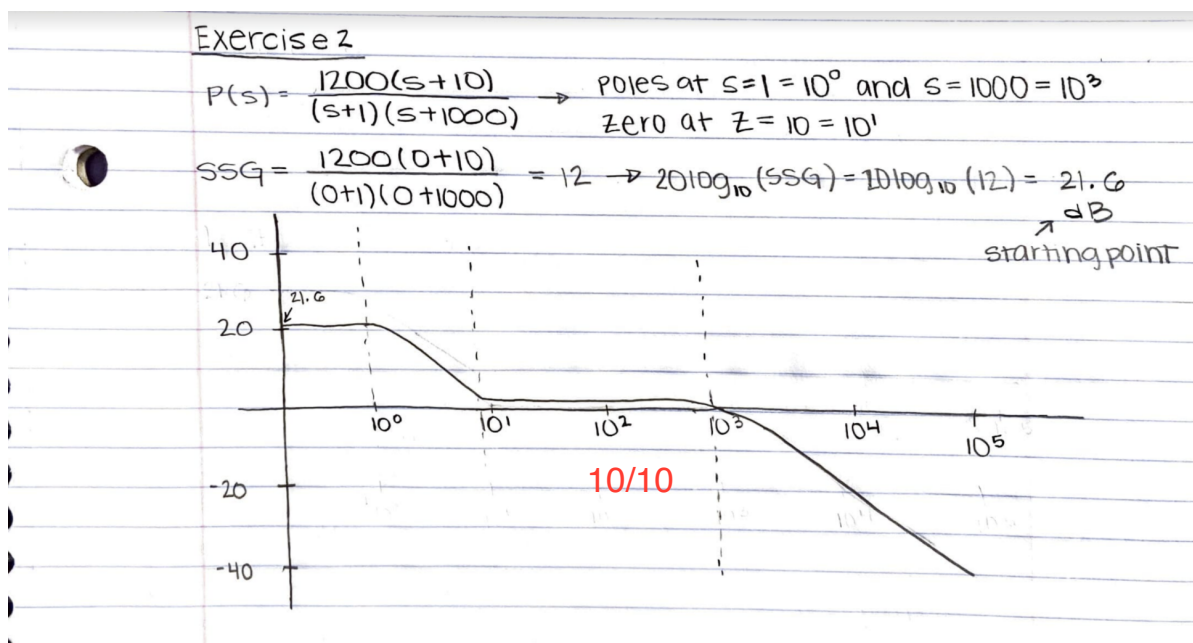 Exercise 2
P(s) = 1200(s+10) / (s+1)(s+1000) → poles at s=1=10⁰ and s=1000=10³
zero at z=10=10¹
SSG = 1200(0+10) / (0+1)(0+1000) = 12 → 20log₁₀(SSG) = 20log₁₀(12) = 21.6
dB
starting point
40
21.6
20
10⁰ 10¹ 10² 10³ 10⁴ 10⁵
10/10
-20
-40